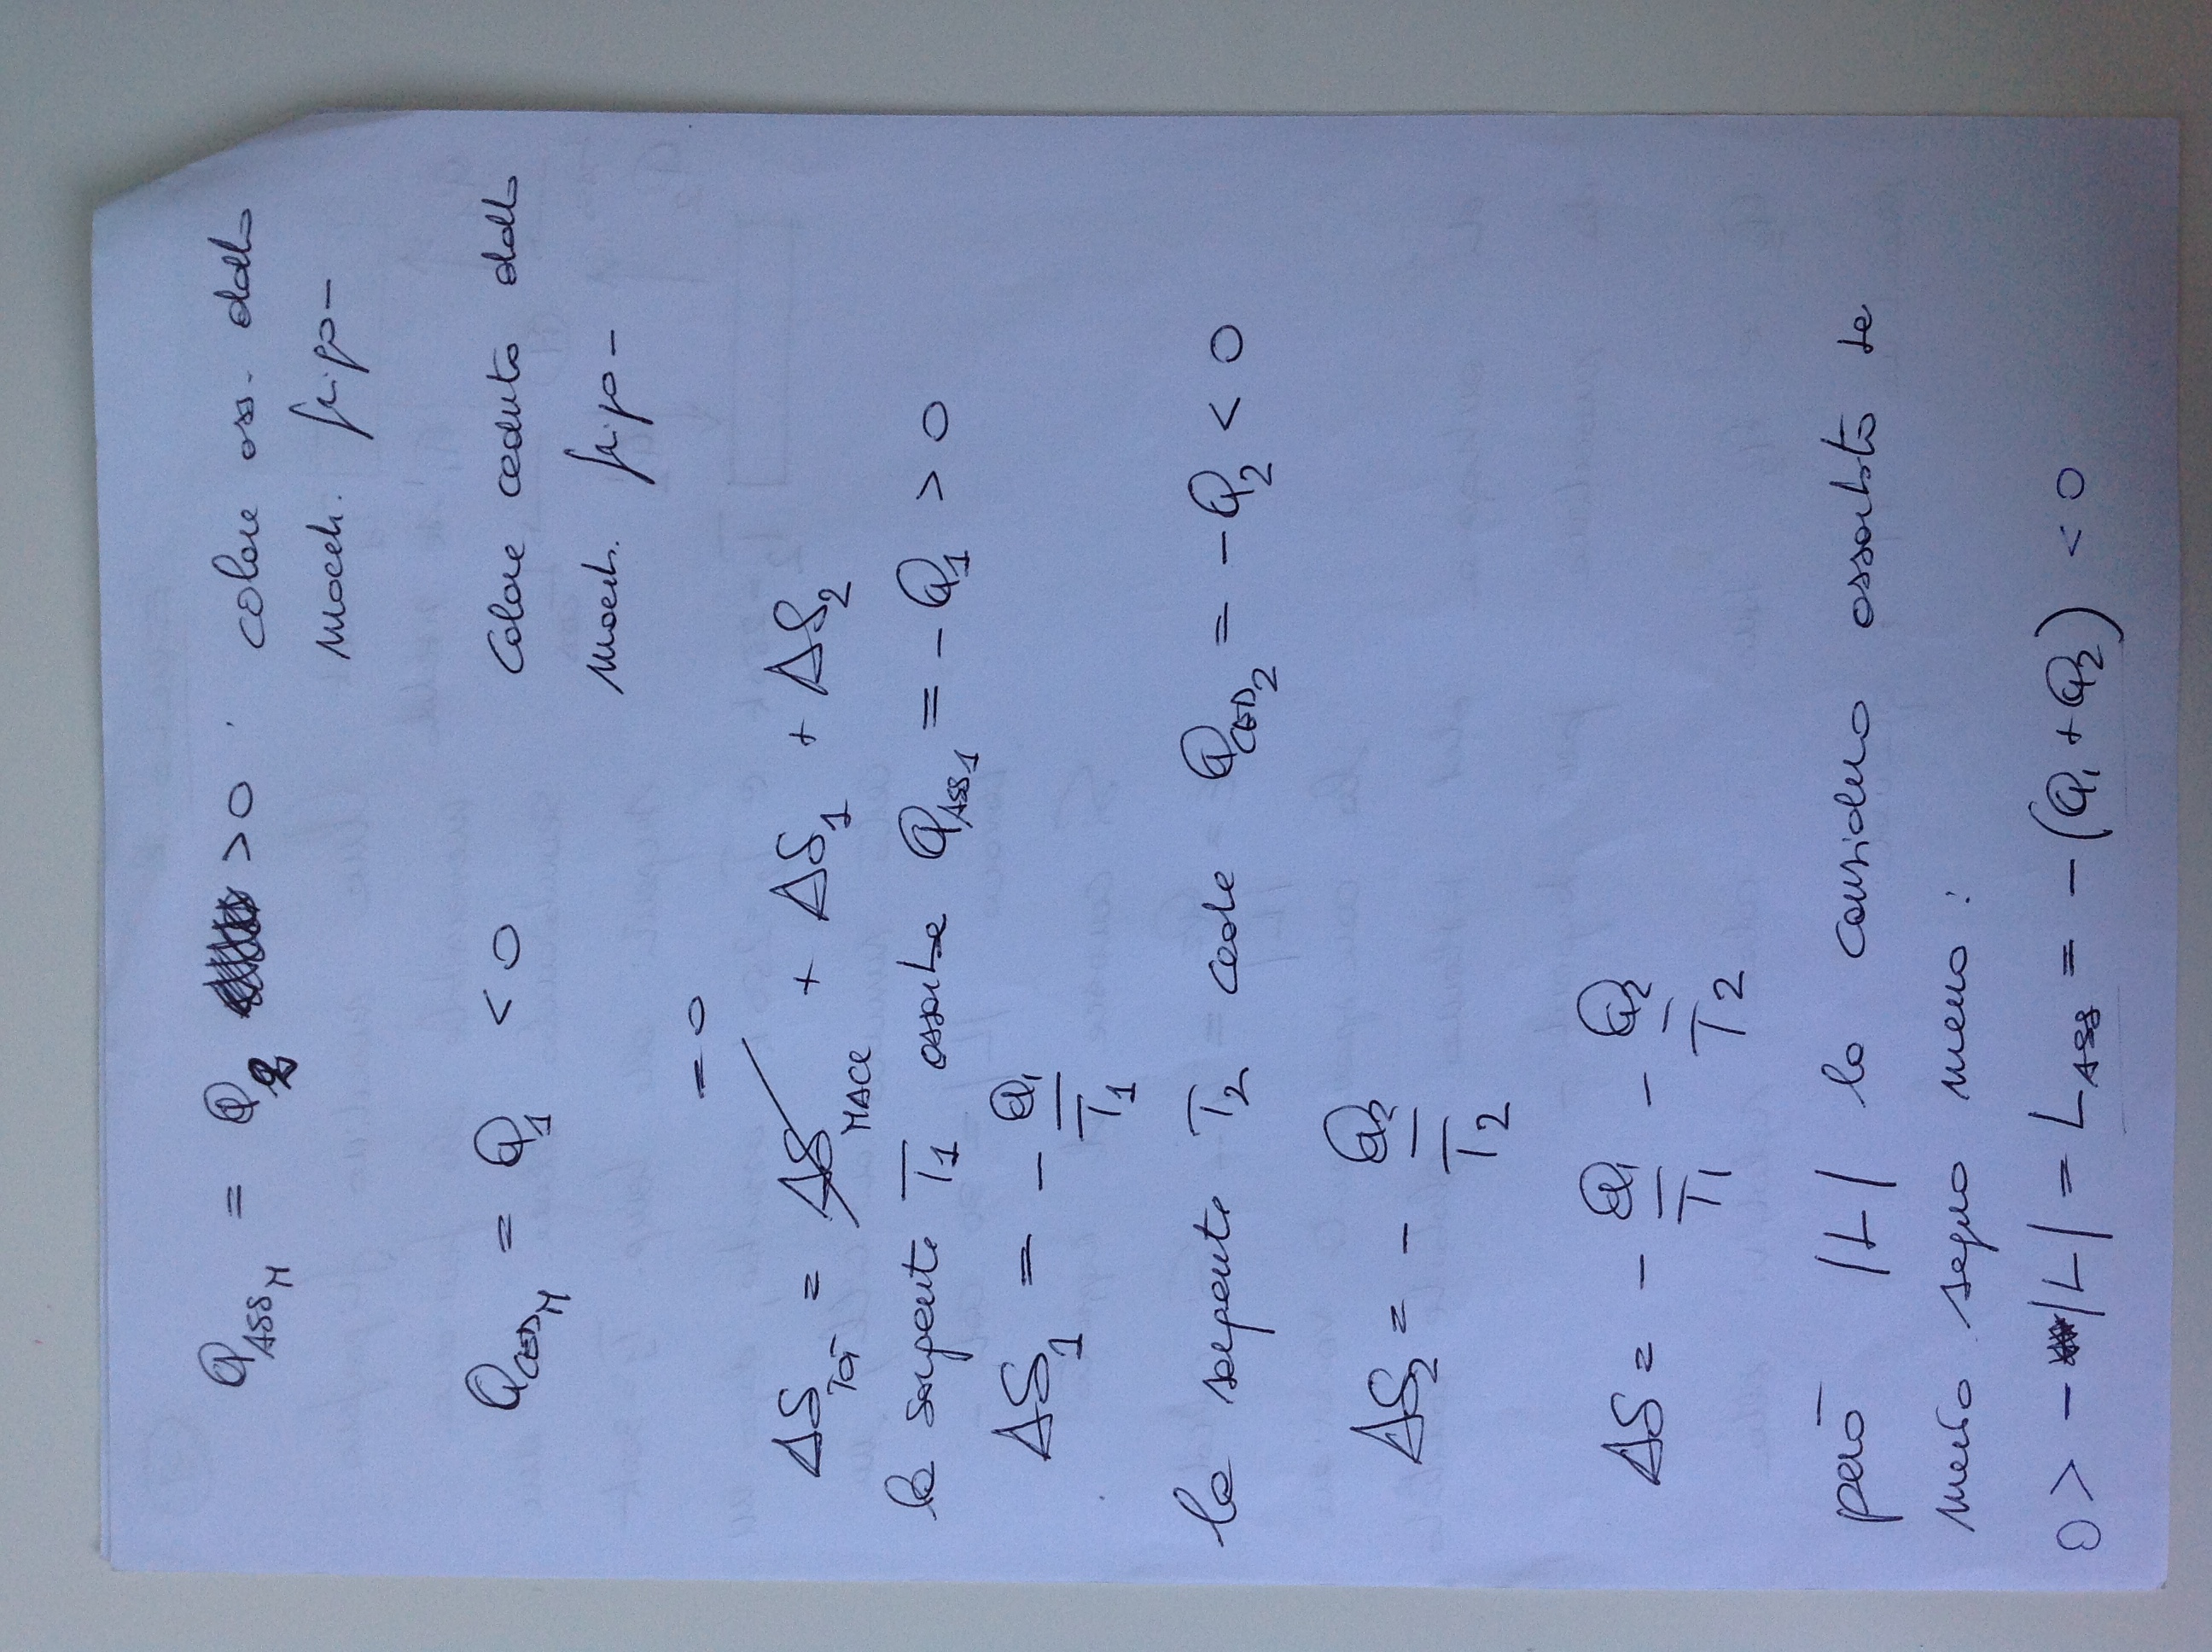 Q_ASS_M = Q_2 > 0 calore ass. dalla
macch. frigo –
Q_CED_M = Q_1 < 0 calore ceduto dalla
macch. frigo –
= 0
ΔS_TOT = ΔS_MACC + ΔS_1 + ΔS_2
la sorgente T_1 assorbe Q_ASS_1 = - Q_1 > 0
ΔS_1 = - Q_1 / T_1
la sorgente T_2 cede Q_CED_2 = - Q_2 < 0
ΔS_2 = - Q_2 / T_2
ΔS = - Q_1 / T_1 - Q_2 / T_2
però |L| lo considero assorbito se
metto segno meno :
0 > - |L| = L_ASS = - (Q_1 + Q_2) < 0